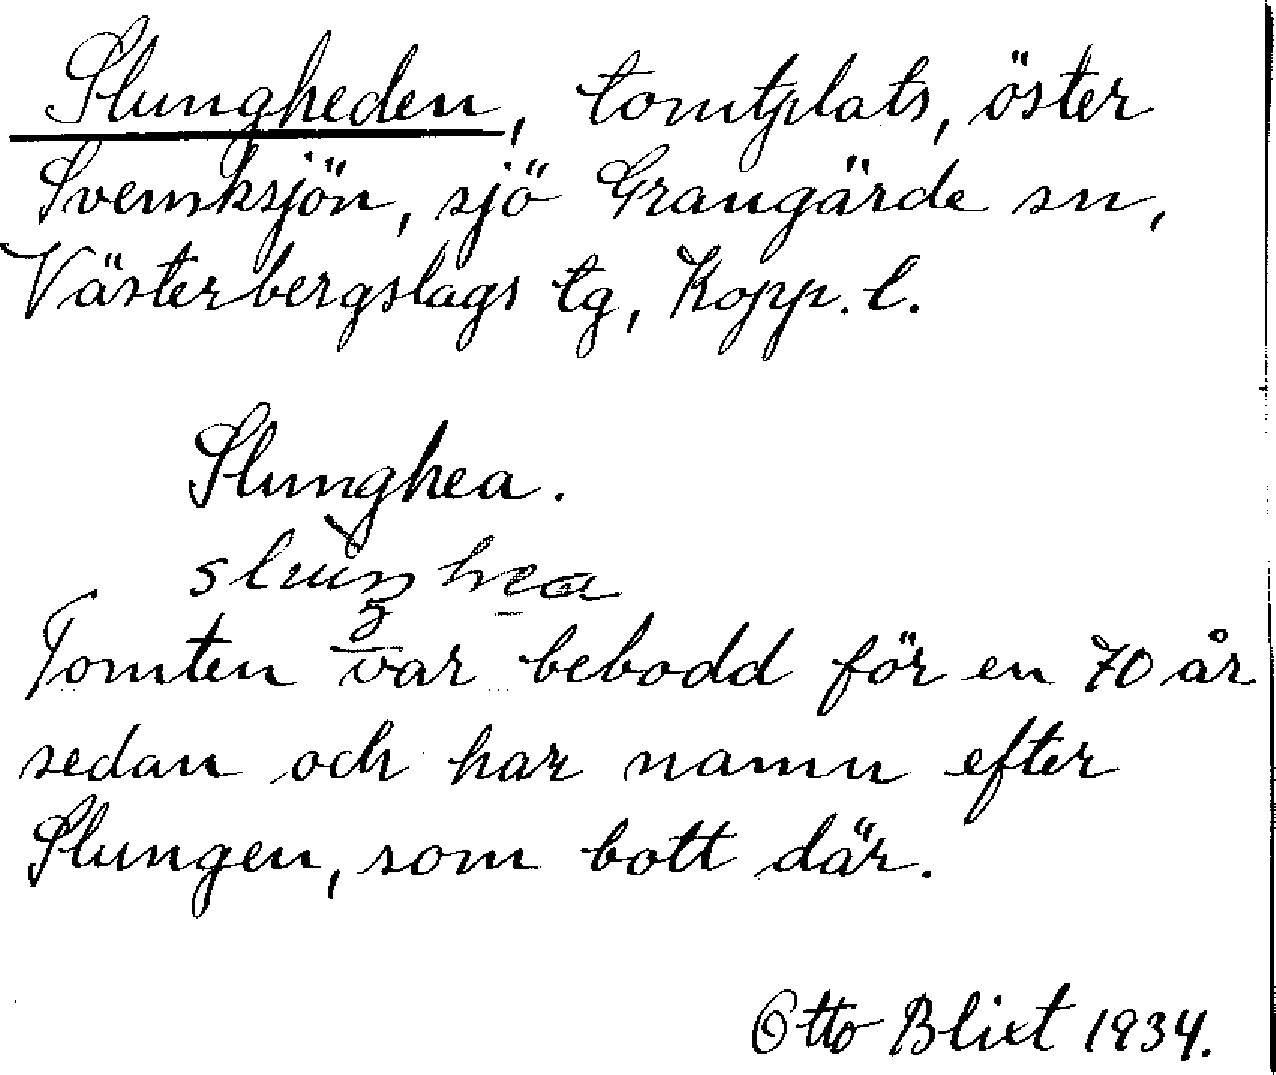 Slungheden, tomtplats, öster
Svensksjön, sjö Grangärde sn,
Västerbergslags tg, Kopp. l.
Slunghea.
Tomten var bebodd för en 70 år
sedan och har namn efter
Slungen, som bott där.
Otto Blixt 1934.